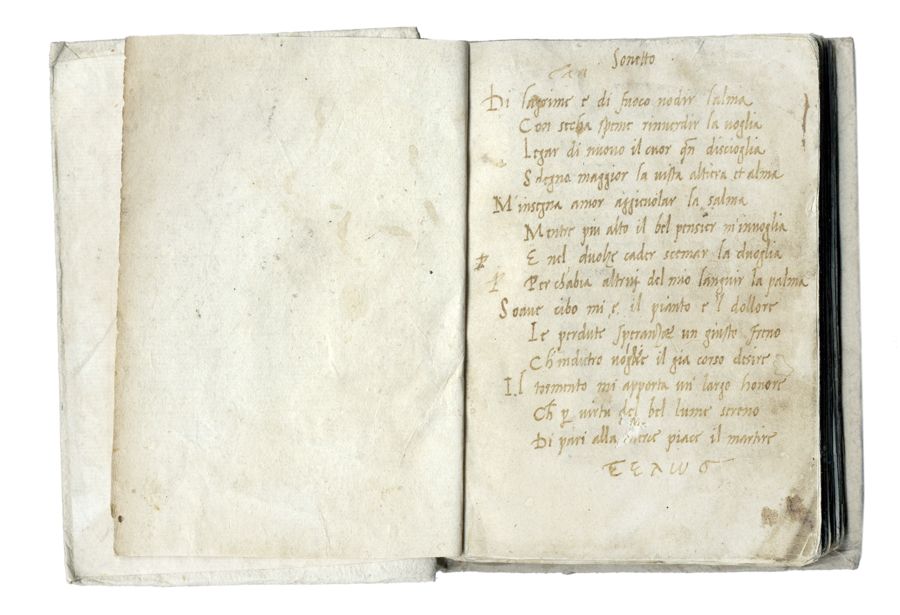 Sonetto
Di lagrime e di fuoco nodrir l'alma
Con secha speme rinverdir la voglia
Legar di nuovo il cuor qn discioglia
Sdegno maggior la vista altiera et alma
M'insegna amor
la salma
Mentre piu alto il bel pensier m'invoglia
E nel
cader scemar la doglia
P
P Perchabia altrui del mio languir la palma
Soave cibo mi e il pianto e'l dollore
Le perdute speranze un giusto freno
Ch'indietro
il gia corso desire
Il tormento mi apporta un largo honore
Ch p virtu del bel lume sereno
Di pari alla
piace il martire